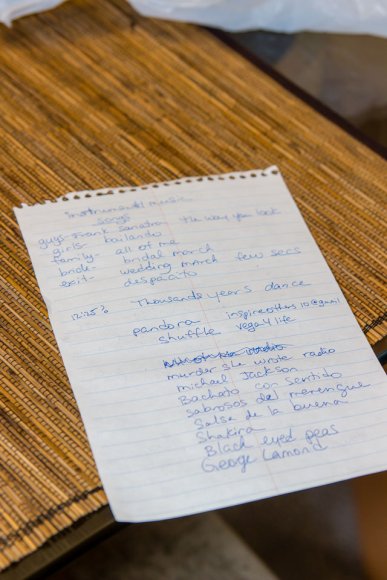 Instrumental music
songs
guys- Frank Sanatra the way you look
girls- bailando
family- all of me
bride- bridal march
exit- wedding march few secs
despacito
Thousands years dance
12:25?
pandora inspireothers10@gmail
shuffle vega4life
murder she wrote radio
michael Jackson
Bachata con sentido
sabrosos del merengue
Salsa de la buena
Shakira
Black eyed peas
George Lamond